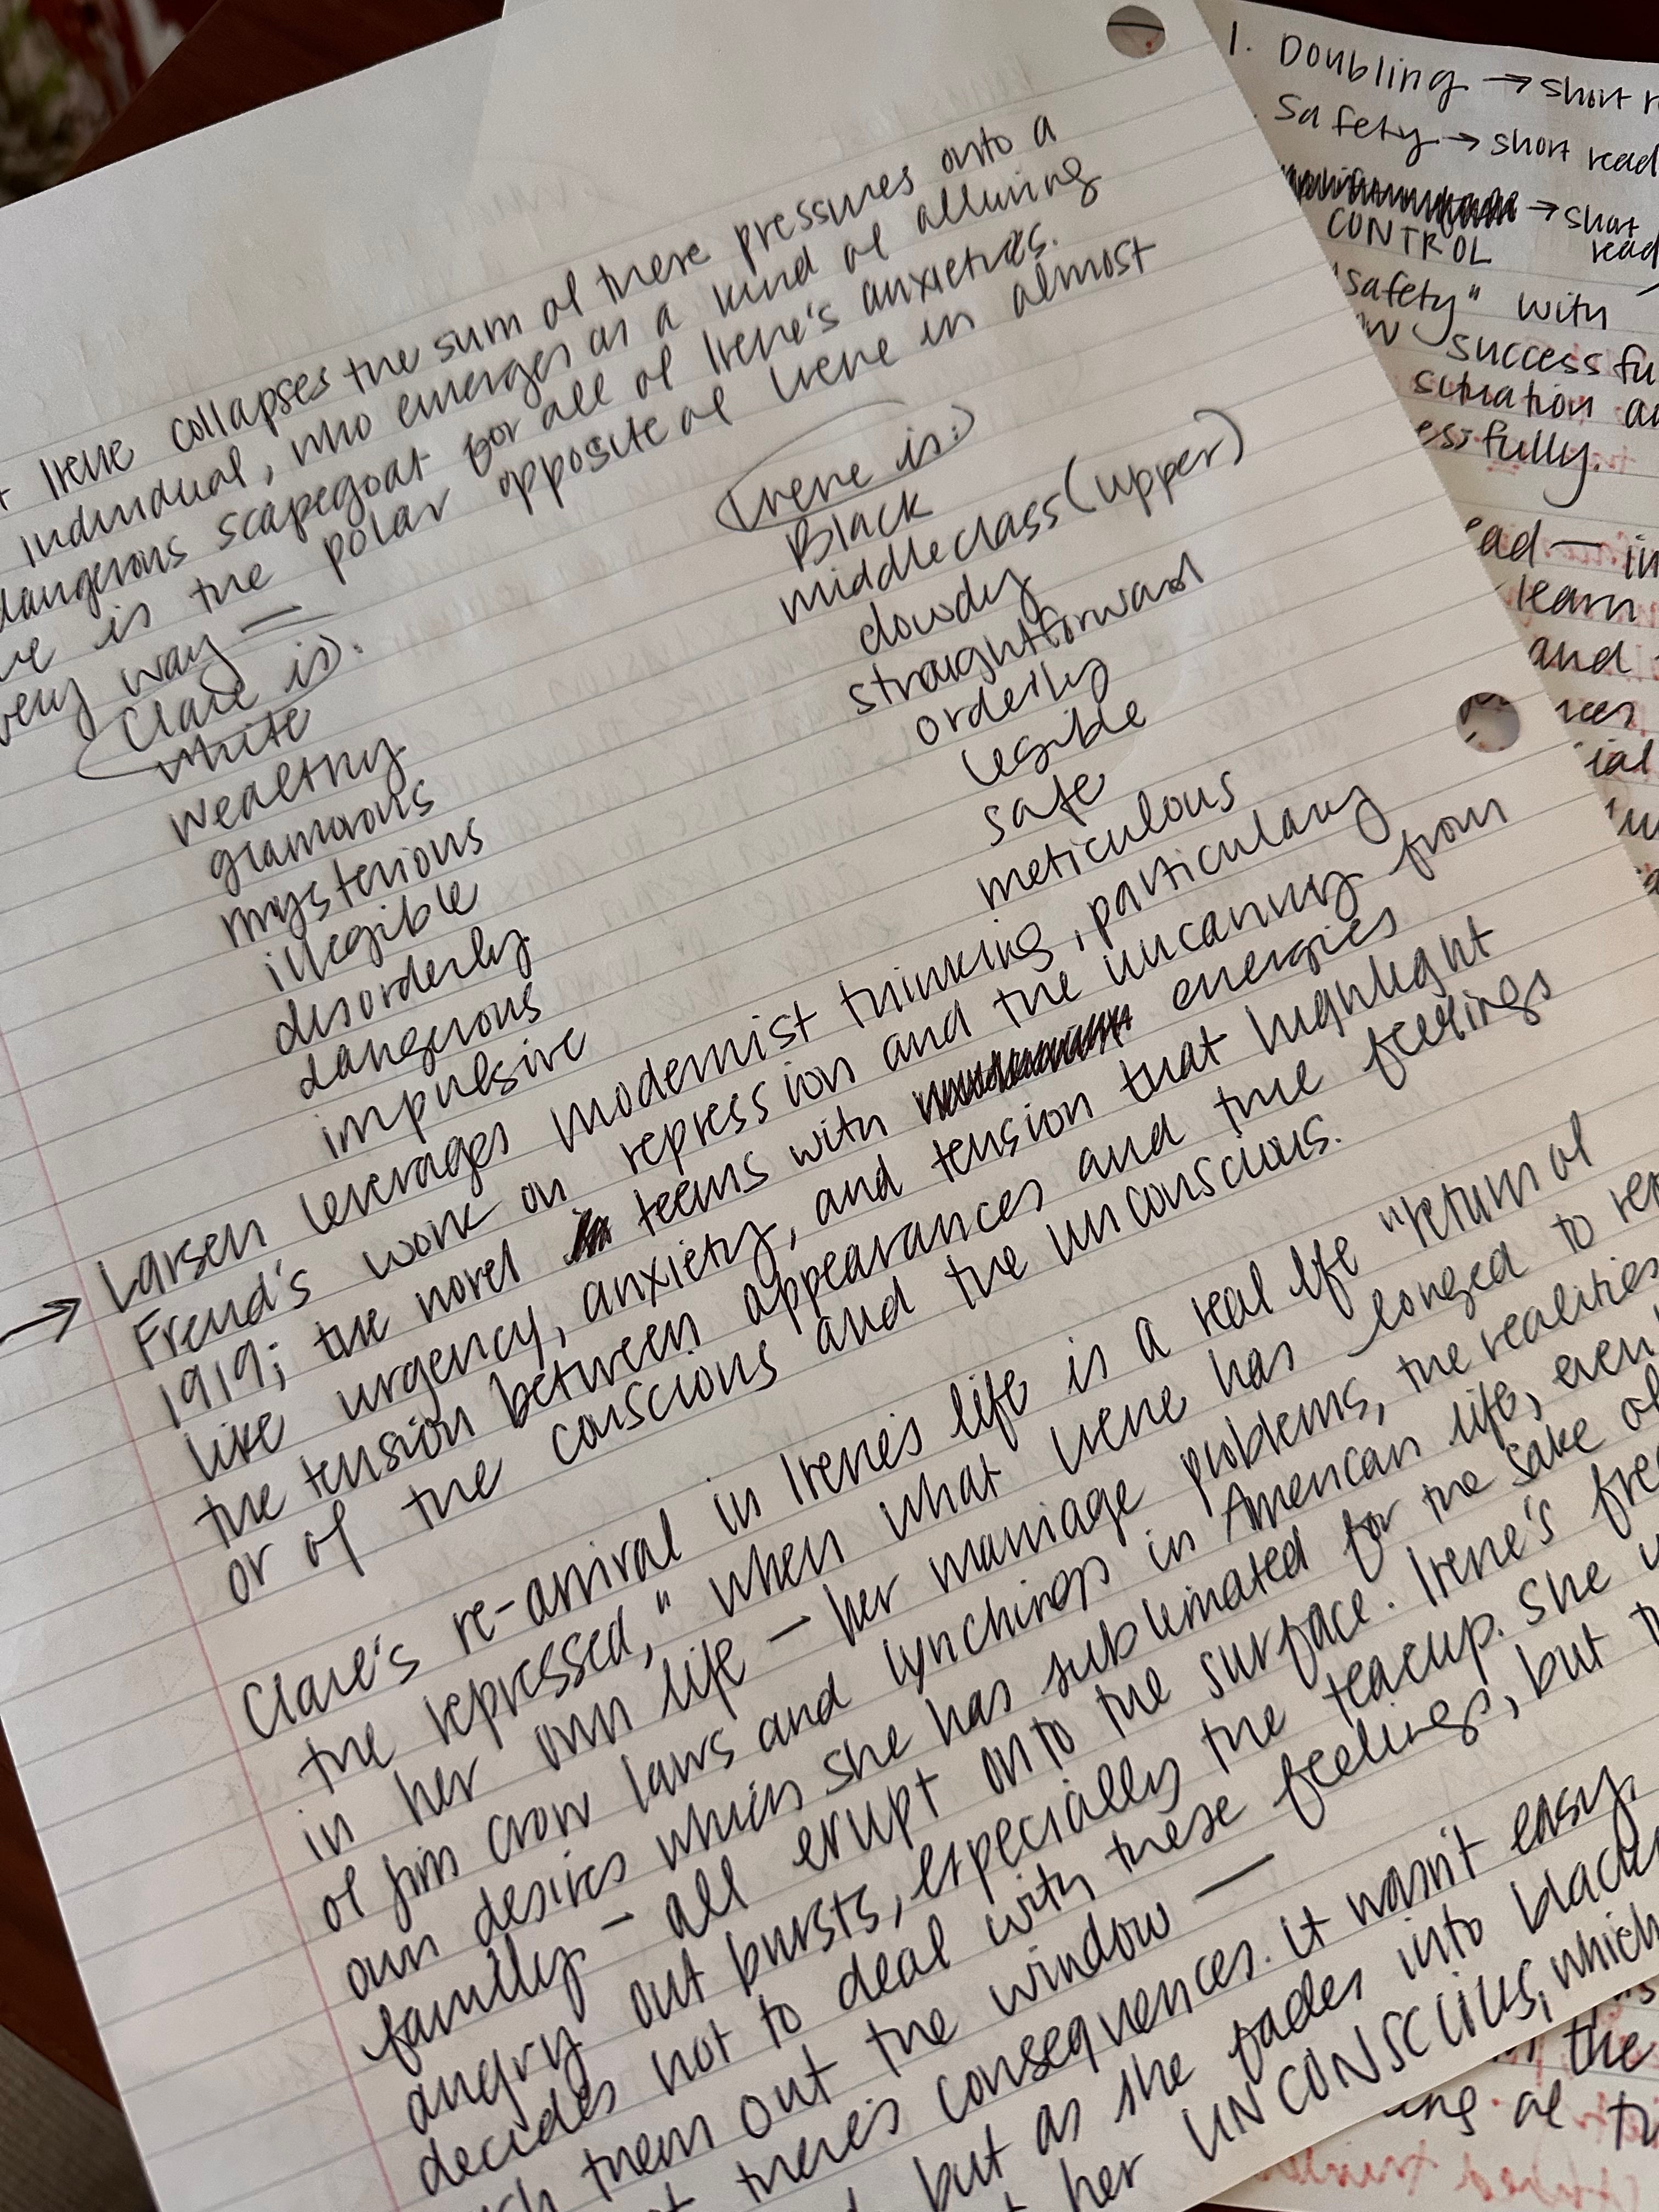 Irene collapses the sum of these pressures onto a
individual, who emerges as a kind of alluring
dangerous scapegoat for all of Irene's anxieties.
is the polar opposite of Irene in almost
very way —
Clare is:
white
wealthy
glamorous
mysterious
illegible
disorderly
dangerous
impulsive
Irene is:
Black
middle class (upper)
dowdy
straightforward
orderly
legible
safe
meticulous
→ Larsen leverages modernist thinking, particularly
Freud's work on repression and the uncanny from
1919; the novel teems with energies
like urgency, anxiety, and tension that highlight
the tension between appearances and true feelings
or of the conscious and the unconscious.
Clare's re-arrival in Irene's life is a real life "return of
the repressed," when what Irene has longed to
in her own life — her marriage problems, the realities
of Jim Crow laws and lynchings in American life, even
own desires which she has sublimated for the sake of
family — all erupt onto the surface. Irene's
angry out bursts, especially the teacup. She
decides not to deal with these feelings, but
them out the window —
there's consequences. it wasn't easy.
but as she fades into
her UNCONSCIOUS, which
1. Doubling → short
Safety → short read
→ short
CONTROL read
"safety" with
success
situation
ad — in
learn
and
the